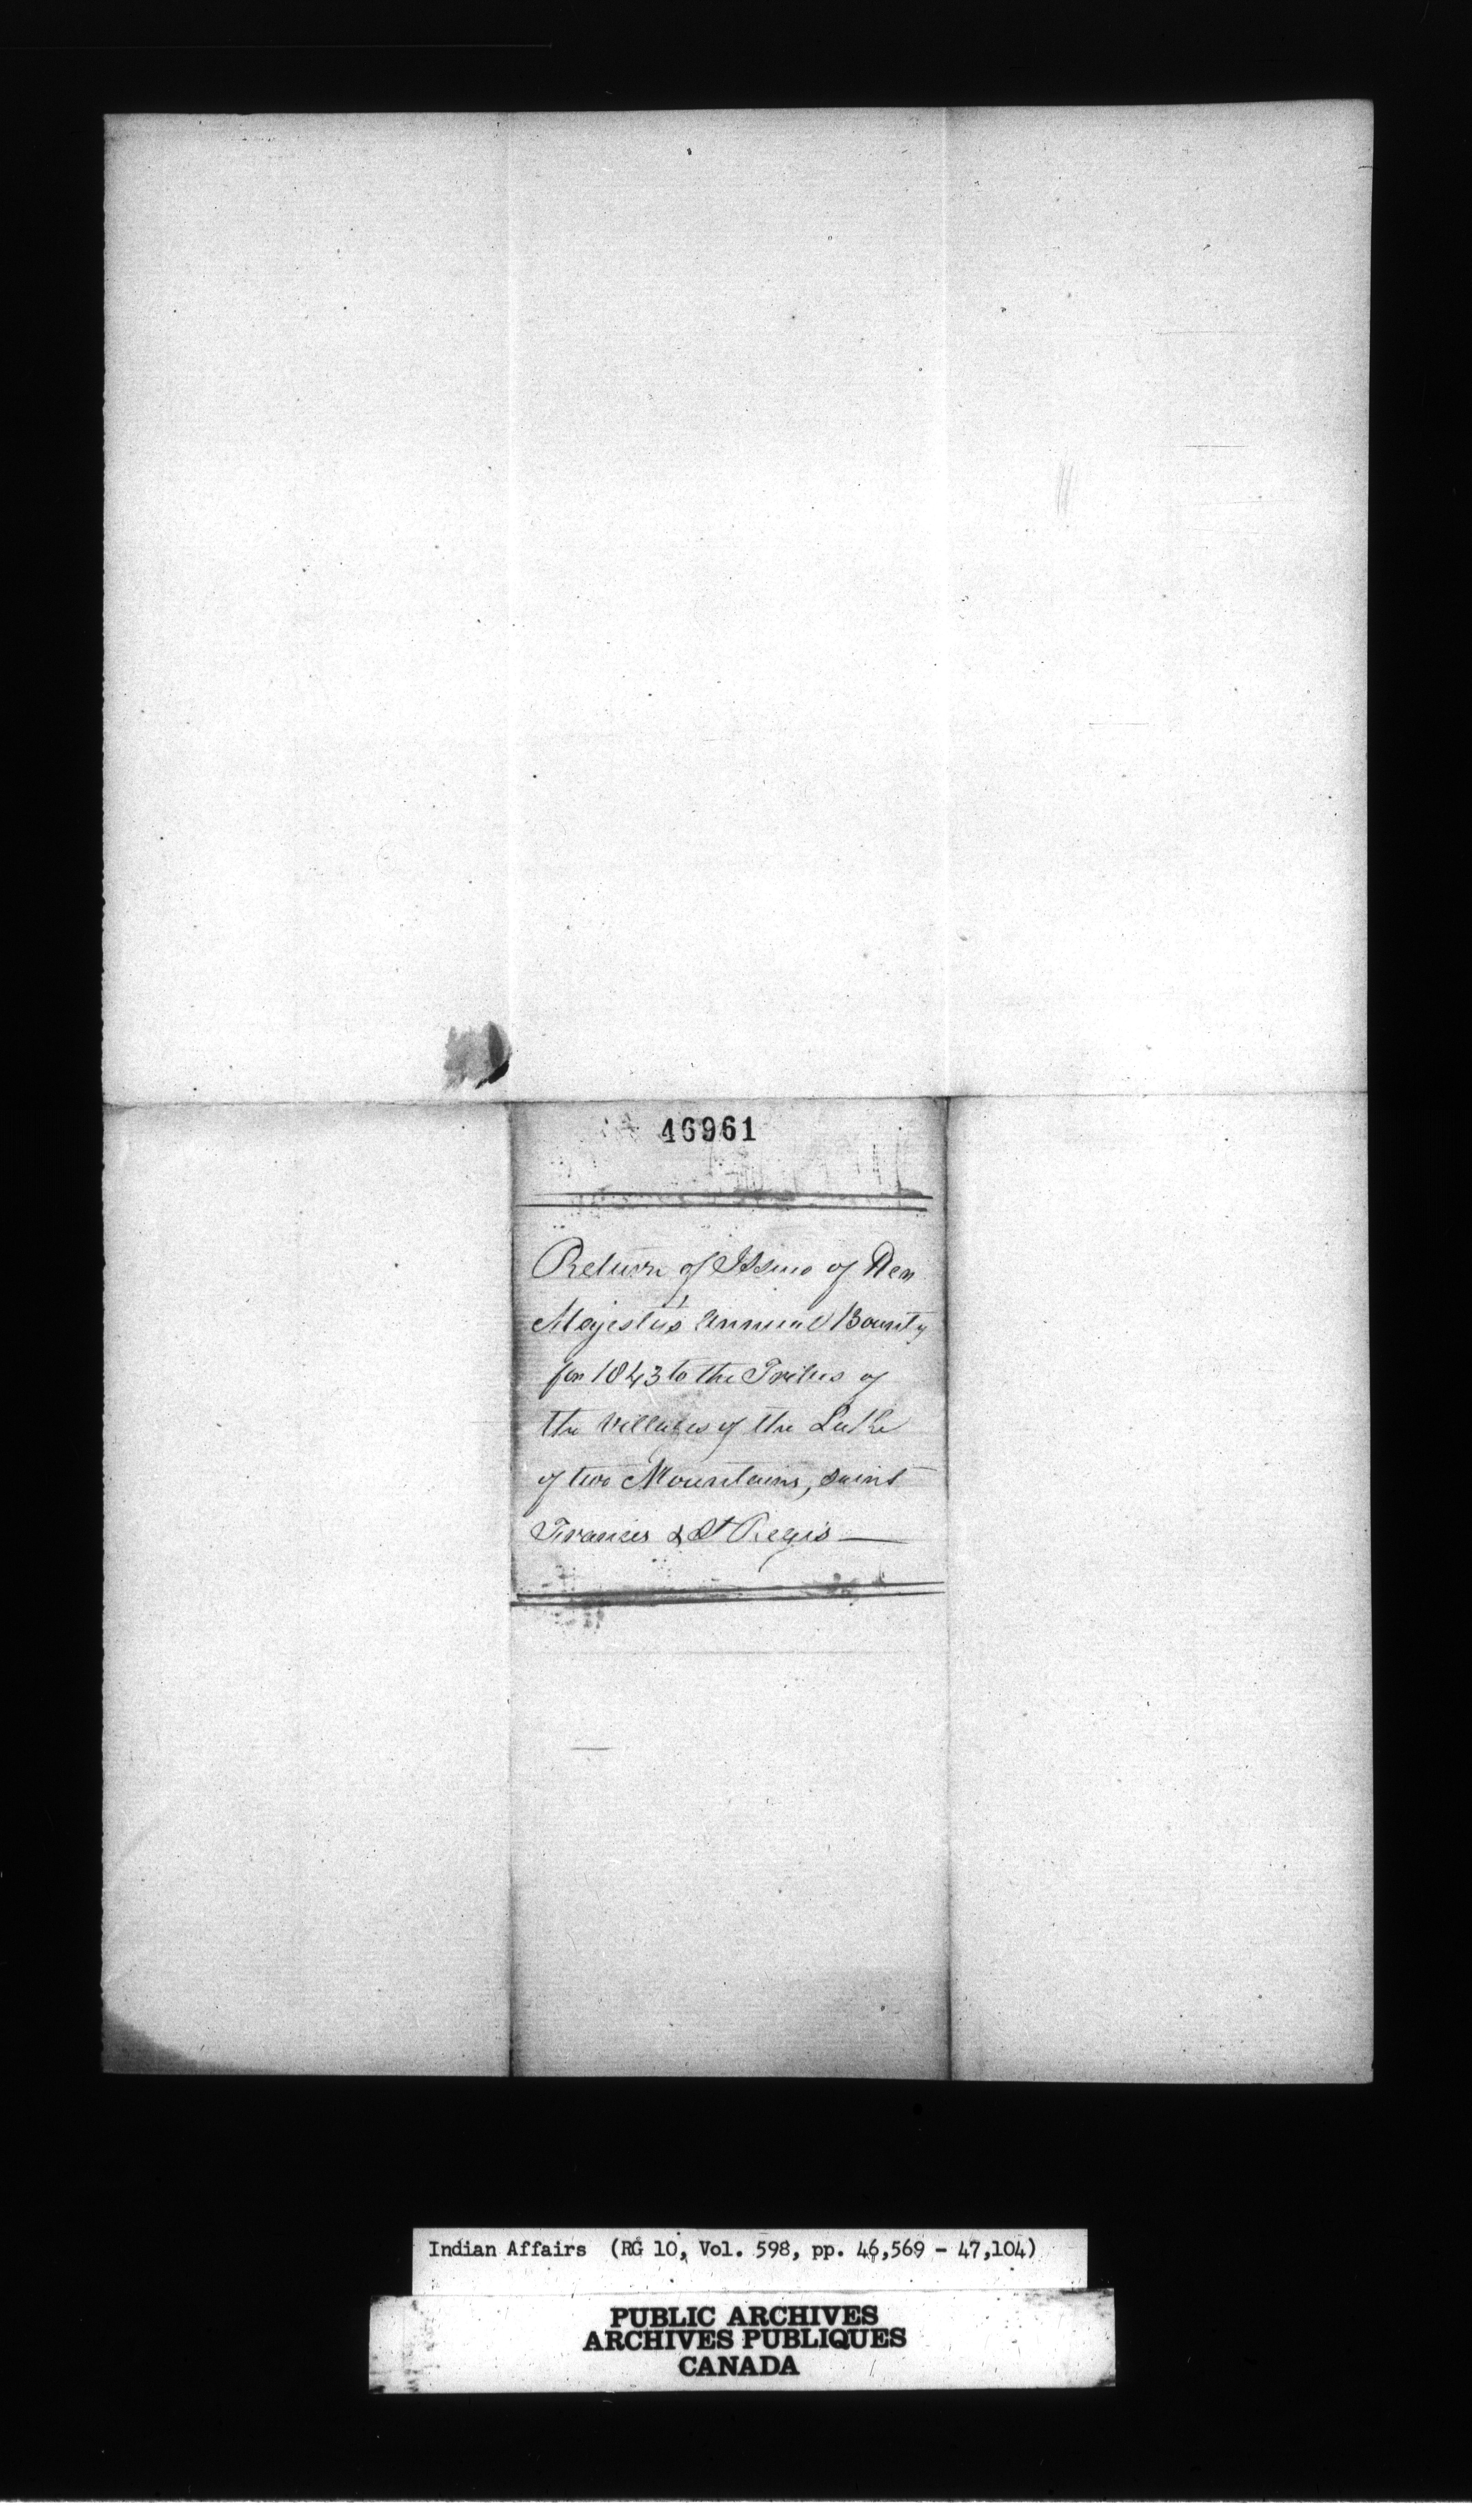 46961
Return of Issue of Her
Majesty's Annual Bounty
for 1843 to the Tribes of
the Villages of the Lake
of two Mountains, Saint
Francis & St Regis —
Indian Affairs (RG 10, Vol. 598, pp. 46,569 - 47,104)
PUBLIC ARCHIVES
ARCHIVES PUBLIQUES
CANADA